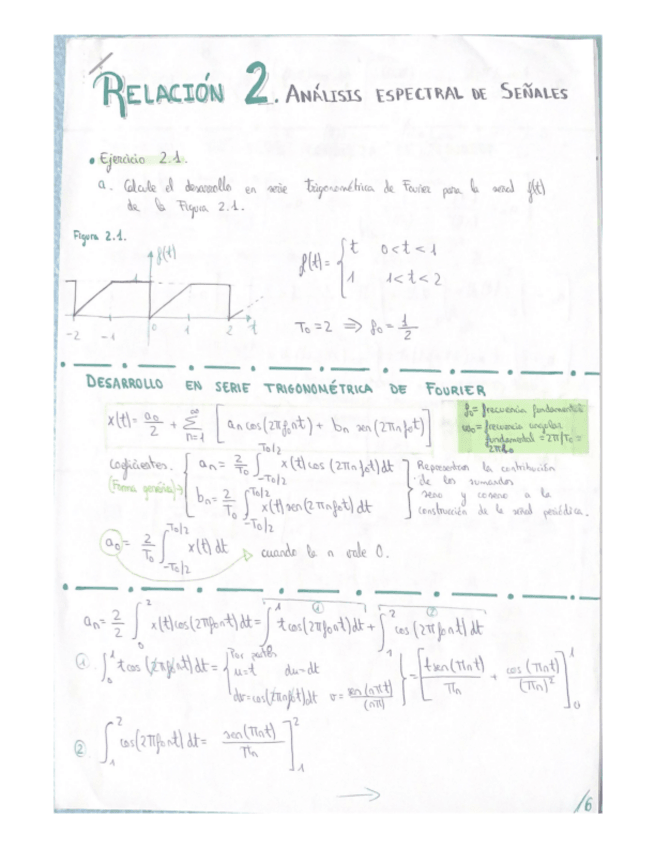 RELACIÓN 2. ANÁLISIS ESPECTRAL DE SEÑALES
• Ejercicio 2.1.
a. Calcule el desarrollo en serie trigonométrica de Fourier para la señal f(t)
de la Figura 2.1.
Figura 2.1.
f(t)
1
-2 -1 0 1 2 t
f(t)= { t 0<t<1
1 1<t<2
T₀=2 ⇒ f₀= 1/2
DESARROLLO EN SERIE TRIGONOMÉTRICA DE FOURIER
x(t)= a₀/2 + ∑_{n=1}^{∞} [an cos(2πf₀nt) + bn sen(2πnf₀t)]
f₀= frecuencia fundamental
ω₀= frecuencia angular
fundamental = 2π/T₀ =
2πf₀
Coeficientes. { an = 2/T₀ ∫_{-T₀/2}^{T₀/2} x(t) cos (2πnf₀t)dt
(Forma genérica)→ bn= 2/T₀ ∫_{-T₀/2}^{T₀/2} x(t) sen(2πnf₀t)dt
Representan la contribución
de los sumandos
seno y coseno a la
construcción de la señal periódica.
a₀= 2/T₀ ∫_{-T₀/2}^{T₀/2} x(t) dt cuando la n vale 0.
an= 2/2 ∫_0^2 x(t)cos(2πf₀nt)dt = ∫_0^1 t cos(2πf₀nt)dt + ∫_1^2 cos (2πf₀nt)dt
① ②
①. ∫_0^1 t cos (2πf₀nt)dt = { Por partes
u=t du=dt
dv=cos(2πnf₀t)dt v= sen(nπt)/(nπ) } = [ t sen(πnt)/πn + cos (πnt)/(πn)² ]_0^1
② ∫_1^2 cos(2πf₀nt) dt = sen(πnt)/πn ]_1^2
→
/6